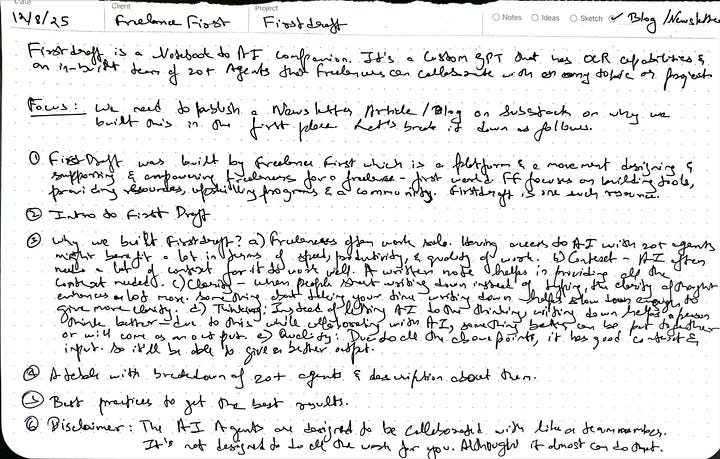 Date Client Project
12/8/25 Freelance First Firstdraft Notes Ideas Sketch Blog / Newsletter
Firstdraft is a Notebook to AI Companion. It's a Custom GPT that has OCR capabilities &
an in-built team of 20+ Agents that Freelancers can collaborate with on any topic or project
Focus: We need to publish a Newsletter Article / Blog on Substack on why we
built this in the first place. Let's break it down as follows.
① First Draft was built by Freelance First which is a platform & a movement designing &
supporting & empowering freelancers for a freelance-first world. FF focuses on building tools,
providing resources, upskilling programs & a community. Firstdraft is one such resource.
② Intro to First Draft
③ Why we built Firstdraft? a) Freelancers often work solo. Having access to AI with 20+ agents
might benefit a lot in terms of speed, productivity, & quality of work. b) Context - AI often
needs a lot of context for it to work well. A written note helps in providing all the
context needed. c) Clarity - when people start writing down instead of typing, the clarity of thought
enhances a lot more. Something about taking your time writing down helps slow down enough to
give more clarity. d) Thinking: Instead of letting AI do the thinking, writing down helps a person
think better - due to this while collaborating with AI, something better can be put together
or will come as an output. e) Quality: Due to all the above points, it has good context &
input. So it'll be able to give a better output.
④ A table with breakdown of 20+ agents & description about them.
⑤ Best practices to get the best results.
⑥ Disclaimer: The AI Agents are designed to be collaborated with like a team member.
It's not designed to do all the work for you. Although it almost can do that.